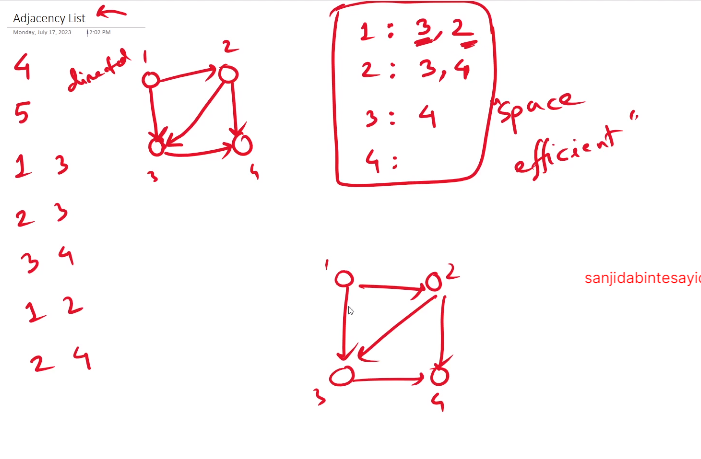 Adjacency List
Monday, July 17, 2023 12:02 PM
4
directed
5
1 3
2 3
3 4
1 2
2 4
1
2
3
4
1 : 3, 2
2 : 3, 4
3 : 4
4 :
"space
efficient"
1
2
3
4
sanjidabintesayid